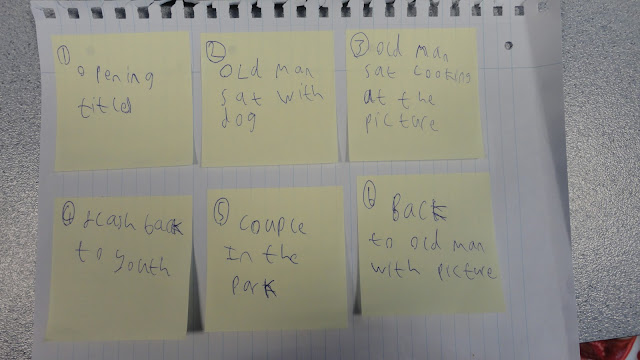 ① opening
titles
② OLd man
sat with
dog
③ old man
sat looking
at the
picture
④ flash back
to youth
⑤ couple
In the
park
⑥ Back
to old man
with picture